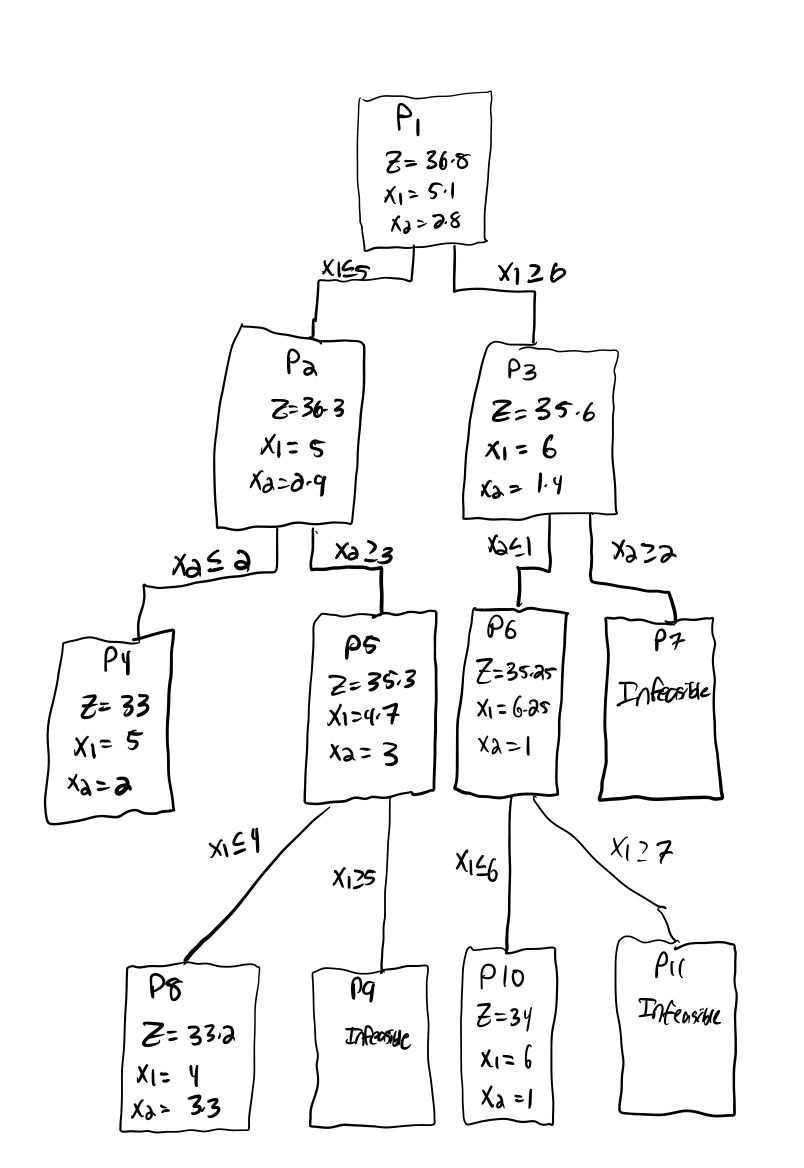 P1
Z = 36.8
x1 = 5.1
x2 = 2.8
x1≤5
x1≥6
P2
Z=36.3
x1= 5
x2=2.9
P3
Z = 35.6
x1 = 6
x2 = 1.4
x2≤2
x2≥3
x2≤1
x2≥2
P4
Z= 33
x1= 5
x2=2
P5
Z=35.3
x1=4.7
x2= 3
P6
Z=35.25
x1=6.25
x2=1
P7
Infeasible
x1≤4
x1≥5
x1≤6
x1≥7
P8
Z= 33.2
x1= 4
x2= 3.3
P9
Infeasible
P10
Z=34
x1= 6
x2=1
P11
Infeasible